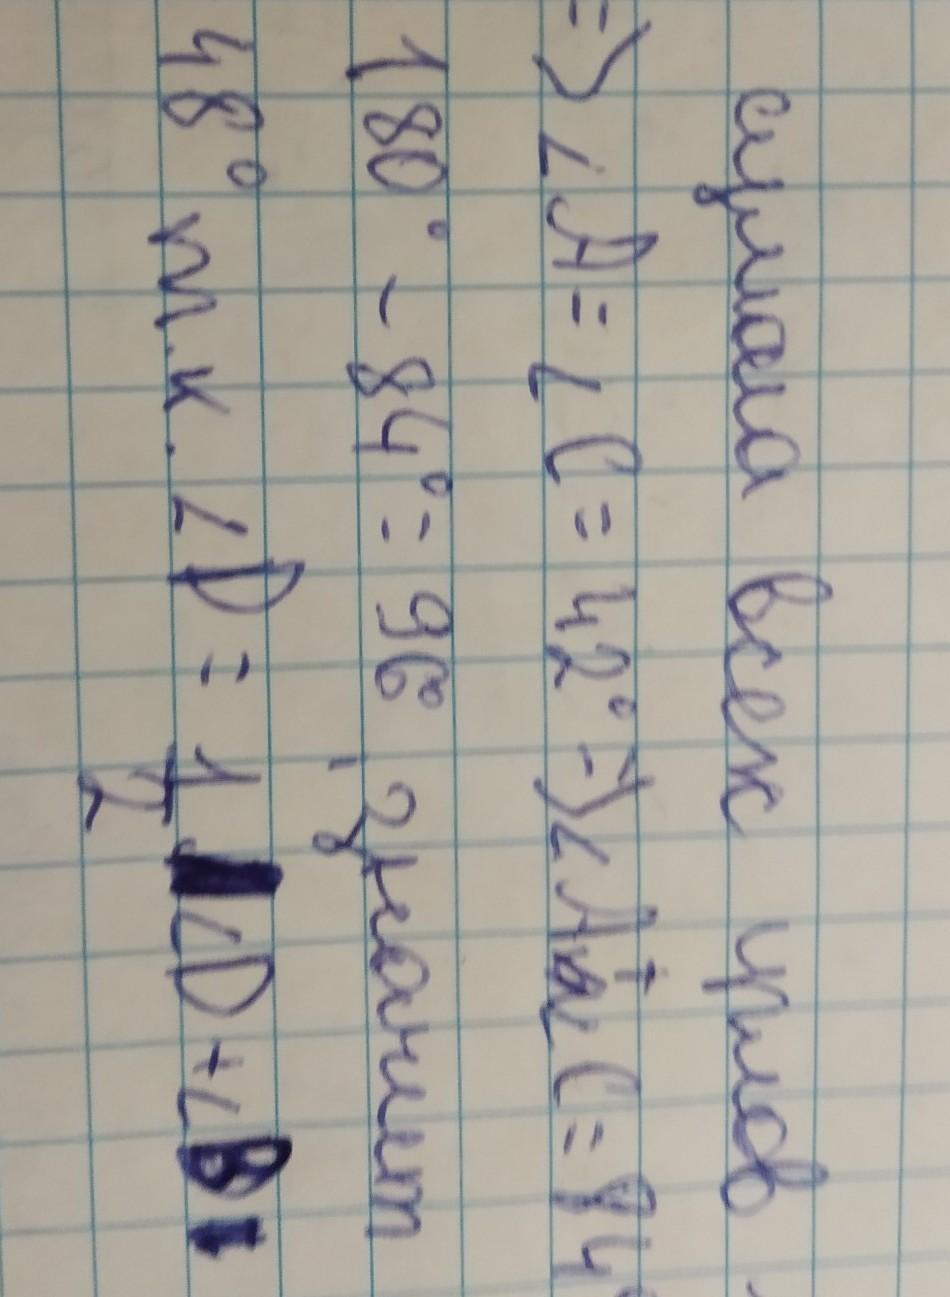 сумма всех углов
=> ∠A = ∠C = 42° => ∠A + ∠C = 84°
180° - 84° = 96°, значит
48° т.к. ∠D = 1/2 ∠D + ∠B